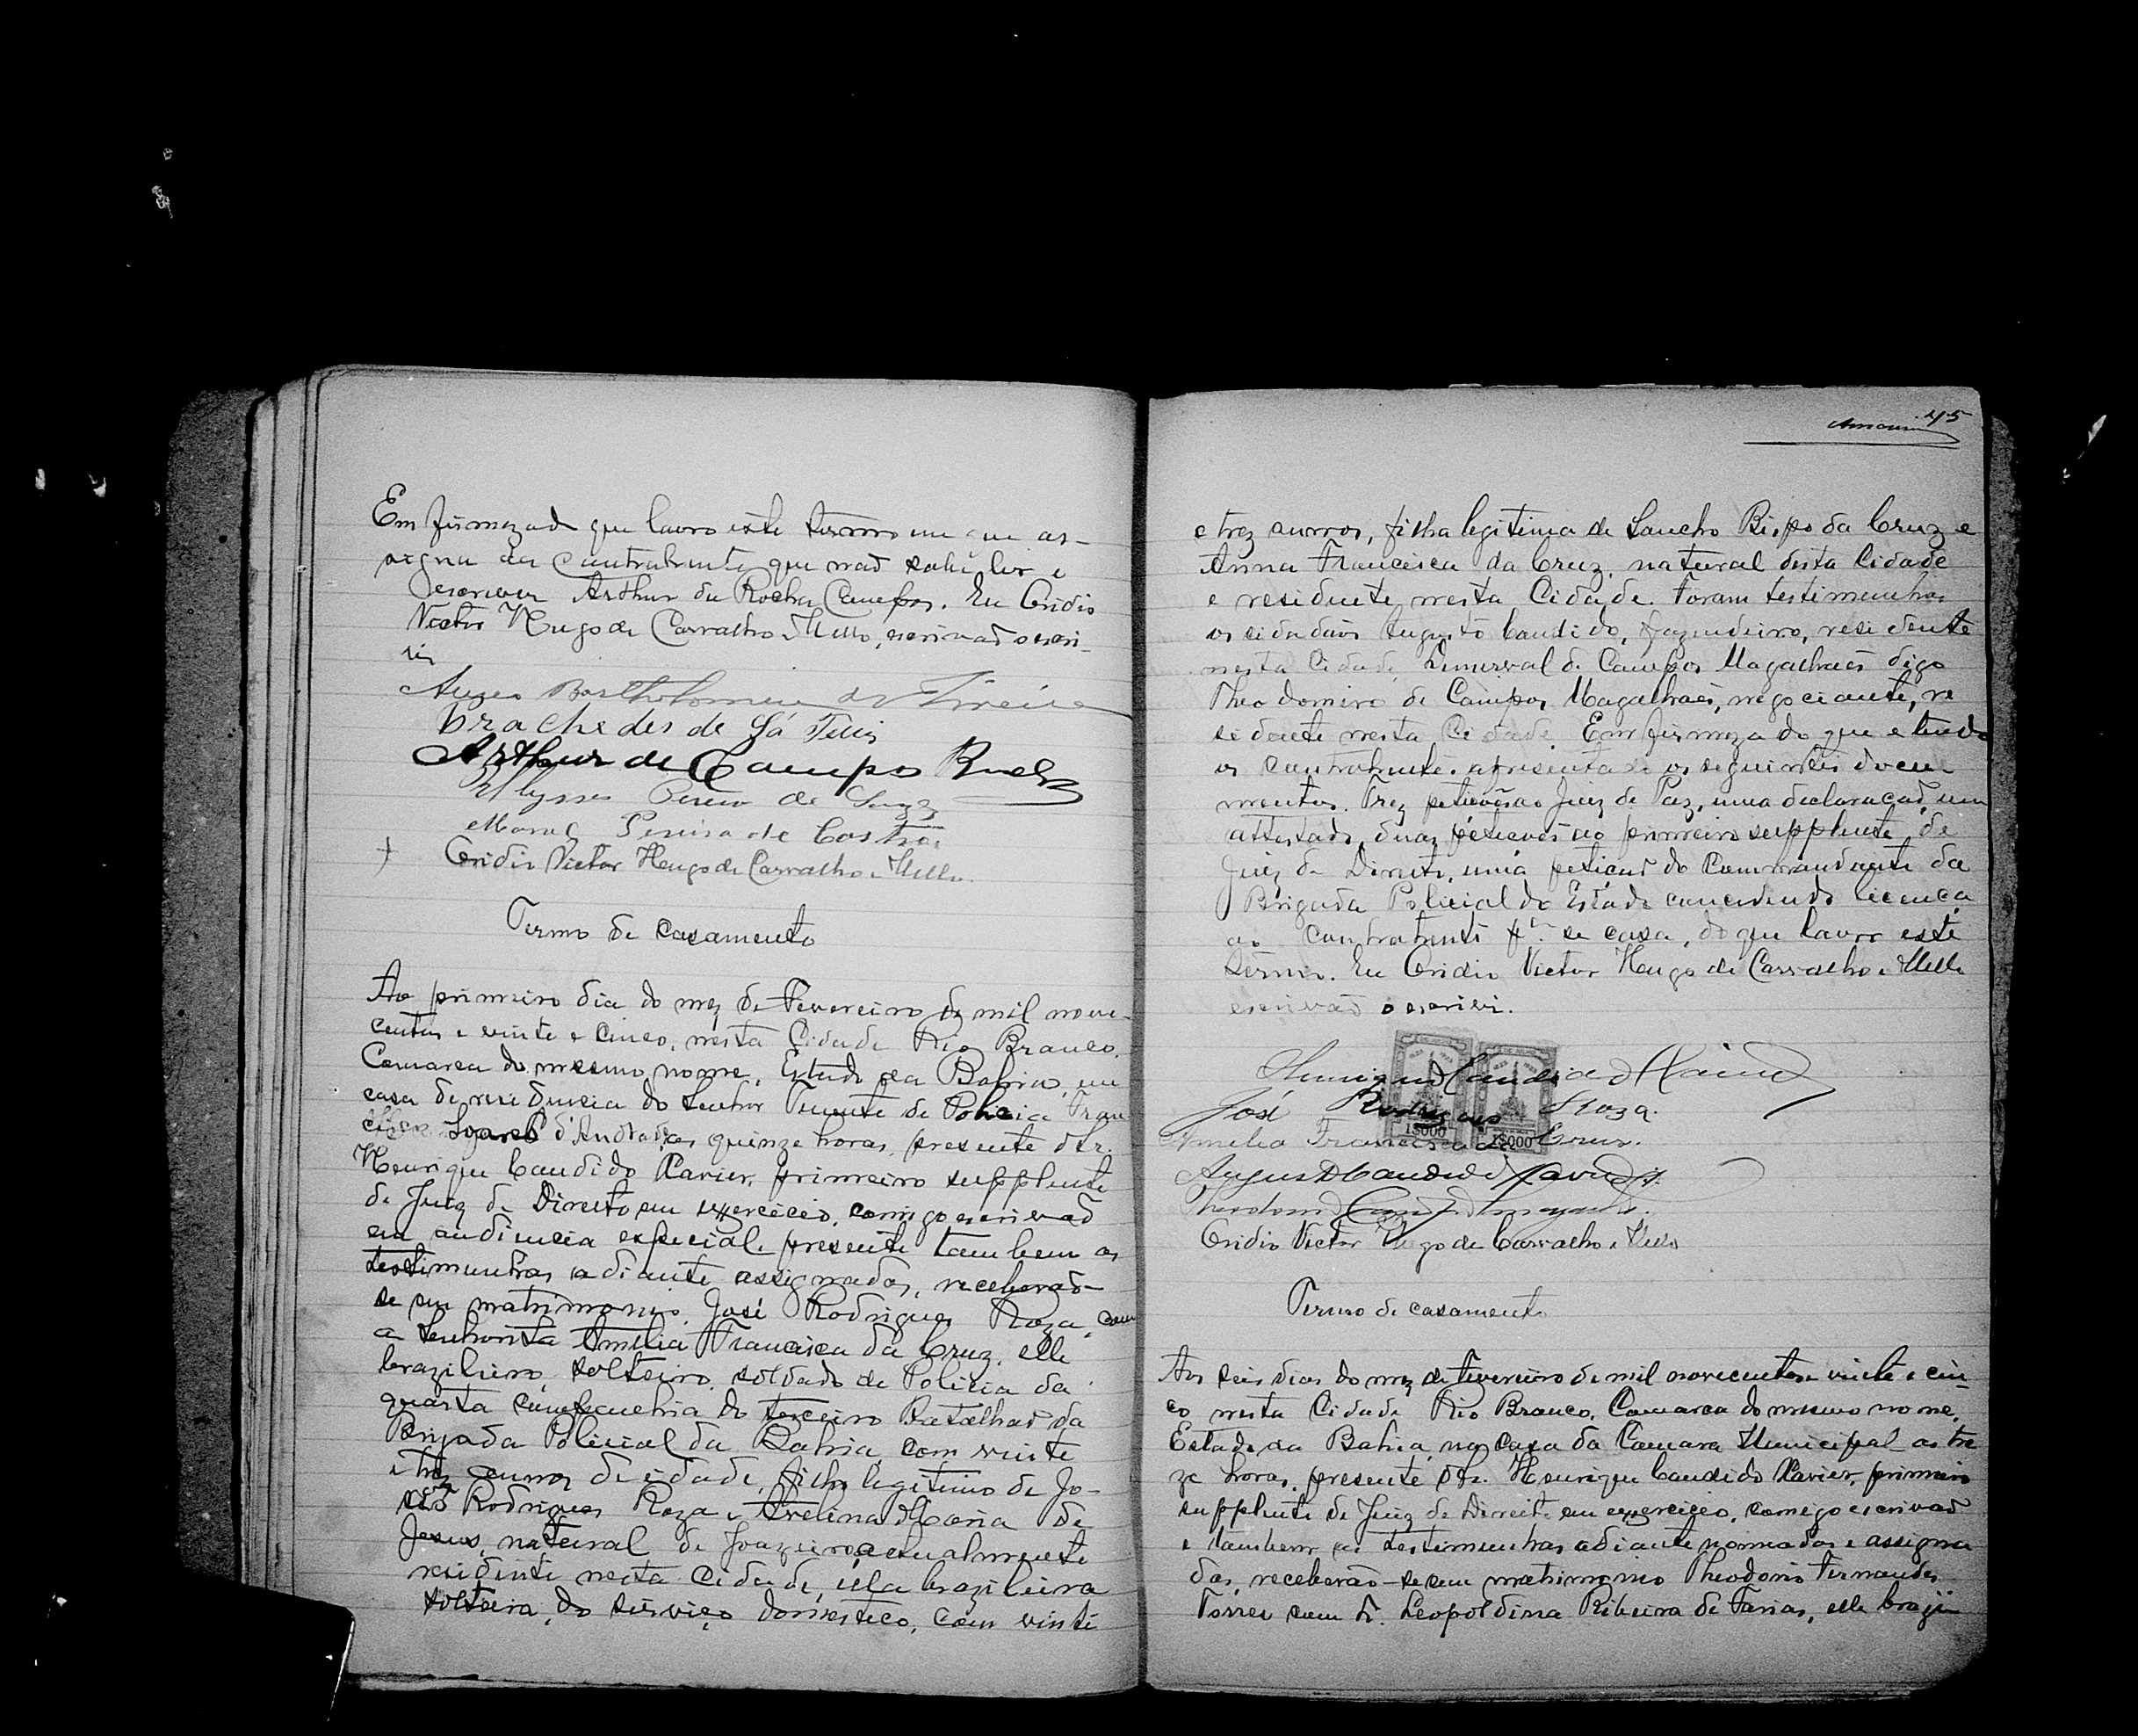 Em firmeza do que lavro este termo em que as-
signa da contrahente que não sabe ler e
escrever Arthur da Rocha Campos. Eu Cridio
Victor Hugo de Carvalho e Mello, escrivão o escri-
vi
Bartholomeu
brachedes de Sá Telis
Arthur de Campos
Ulysses Pereira de Souza
Manoel Pereira de Castro
Cridio Victor Hugo de Carvalho e Mello
Termo de casamento
Ao primeiro dia do mez de Fevereiro de mil nove-
centos e vinte e cinco, nesta Cidade Rio Branco,
Comarca do mesmo nome, Estado da Bahia, em
casa de residencia do Senhor Tenente de Policia Fran
cisco Soares d'Andrade, as quinze horas, presente o Sr.
Henrique Candido Xavier, primeiro supplente
de Juiz de Direito em exercicio, comigo escrivão
em audiencia especial, presente tambem as
testimunhas adiante assignadas, receberão-
se em matrimonio José Rodrigues Roza, com
a senhorita Amelia Francisca da Cruz, elle
brazileiro, solteiro, soldado de Policia da
quarta companhia do terceiro Batalhão da
Brigada Policial da Bahia, com vinte
e trez annos de idade, filho legitimo de Jo-
sé Rodrigues Roza e Avelina Maria de
Jesus, natural de Joazeiro, actualmente
residente nesta Cidade, ella brazileira
solteira, do serviço domestico, com vinte
45
e trez annos, filha legitima de Sancho Bispo da Cruz e
Anna Francisca da Cruz, natural desta Cidade
e residente nesta Cidade. Foram testimunhas
os cidadãos Augusto Candido, fazendeiro, residente
nesta Cidade, Demerval de Campos Magalhães digo
Theodomiro de Campos Magalhães, negociante, re
sidente nesta Cidade. Em firmeza do que e tendo
os contrahentes apresentado os seguintes docu
mentos. Trez petições ao Juiz de Paz, uma declaração, um
attestado, duas petições ao primeiro supplente de
Juiz de Direito, uma petição do Commandante da
Brigada Policial do Estado concedendo licença
ao contrahente pª se casa, do que lavro este
termo. Eu Cridio Victor Hugo de Carvalho e Mello
escrivão o escrivi.
Henrique Candido Xavier
José Rodrigues Roza
Amelia Francisca da Cruz.
1$000 1$000
Augusto Candido Xavier
Cridio Victor Hugo de Carvalho e Mello
Termo de casamento
Aos seis dias do mez de Fevereiro de mil novecentos e vinte e cin-
co nesta Cidade Rio Branco, Comarca do mesmo nome,
Estado da Bahia, na casa da Camara Municipal as tre
ze horas, presente o Sr. Henrique Candido Xavier, primeiro
supplente de Juiz de Direito em exercicio, comigo escrivão
e tambem as testimunhas adiante nomeadas e assigna
das, receberão-se em matrimonio Theodorio Fernandes
Torres com D. Leopoldina Ribeira de Farias, elle brazi-